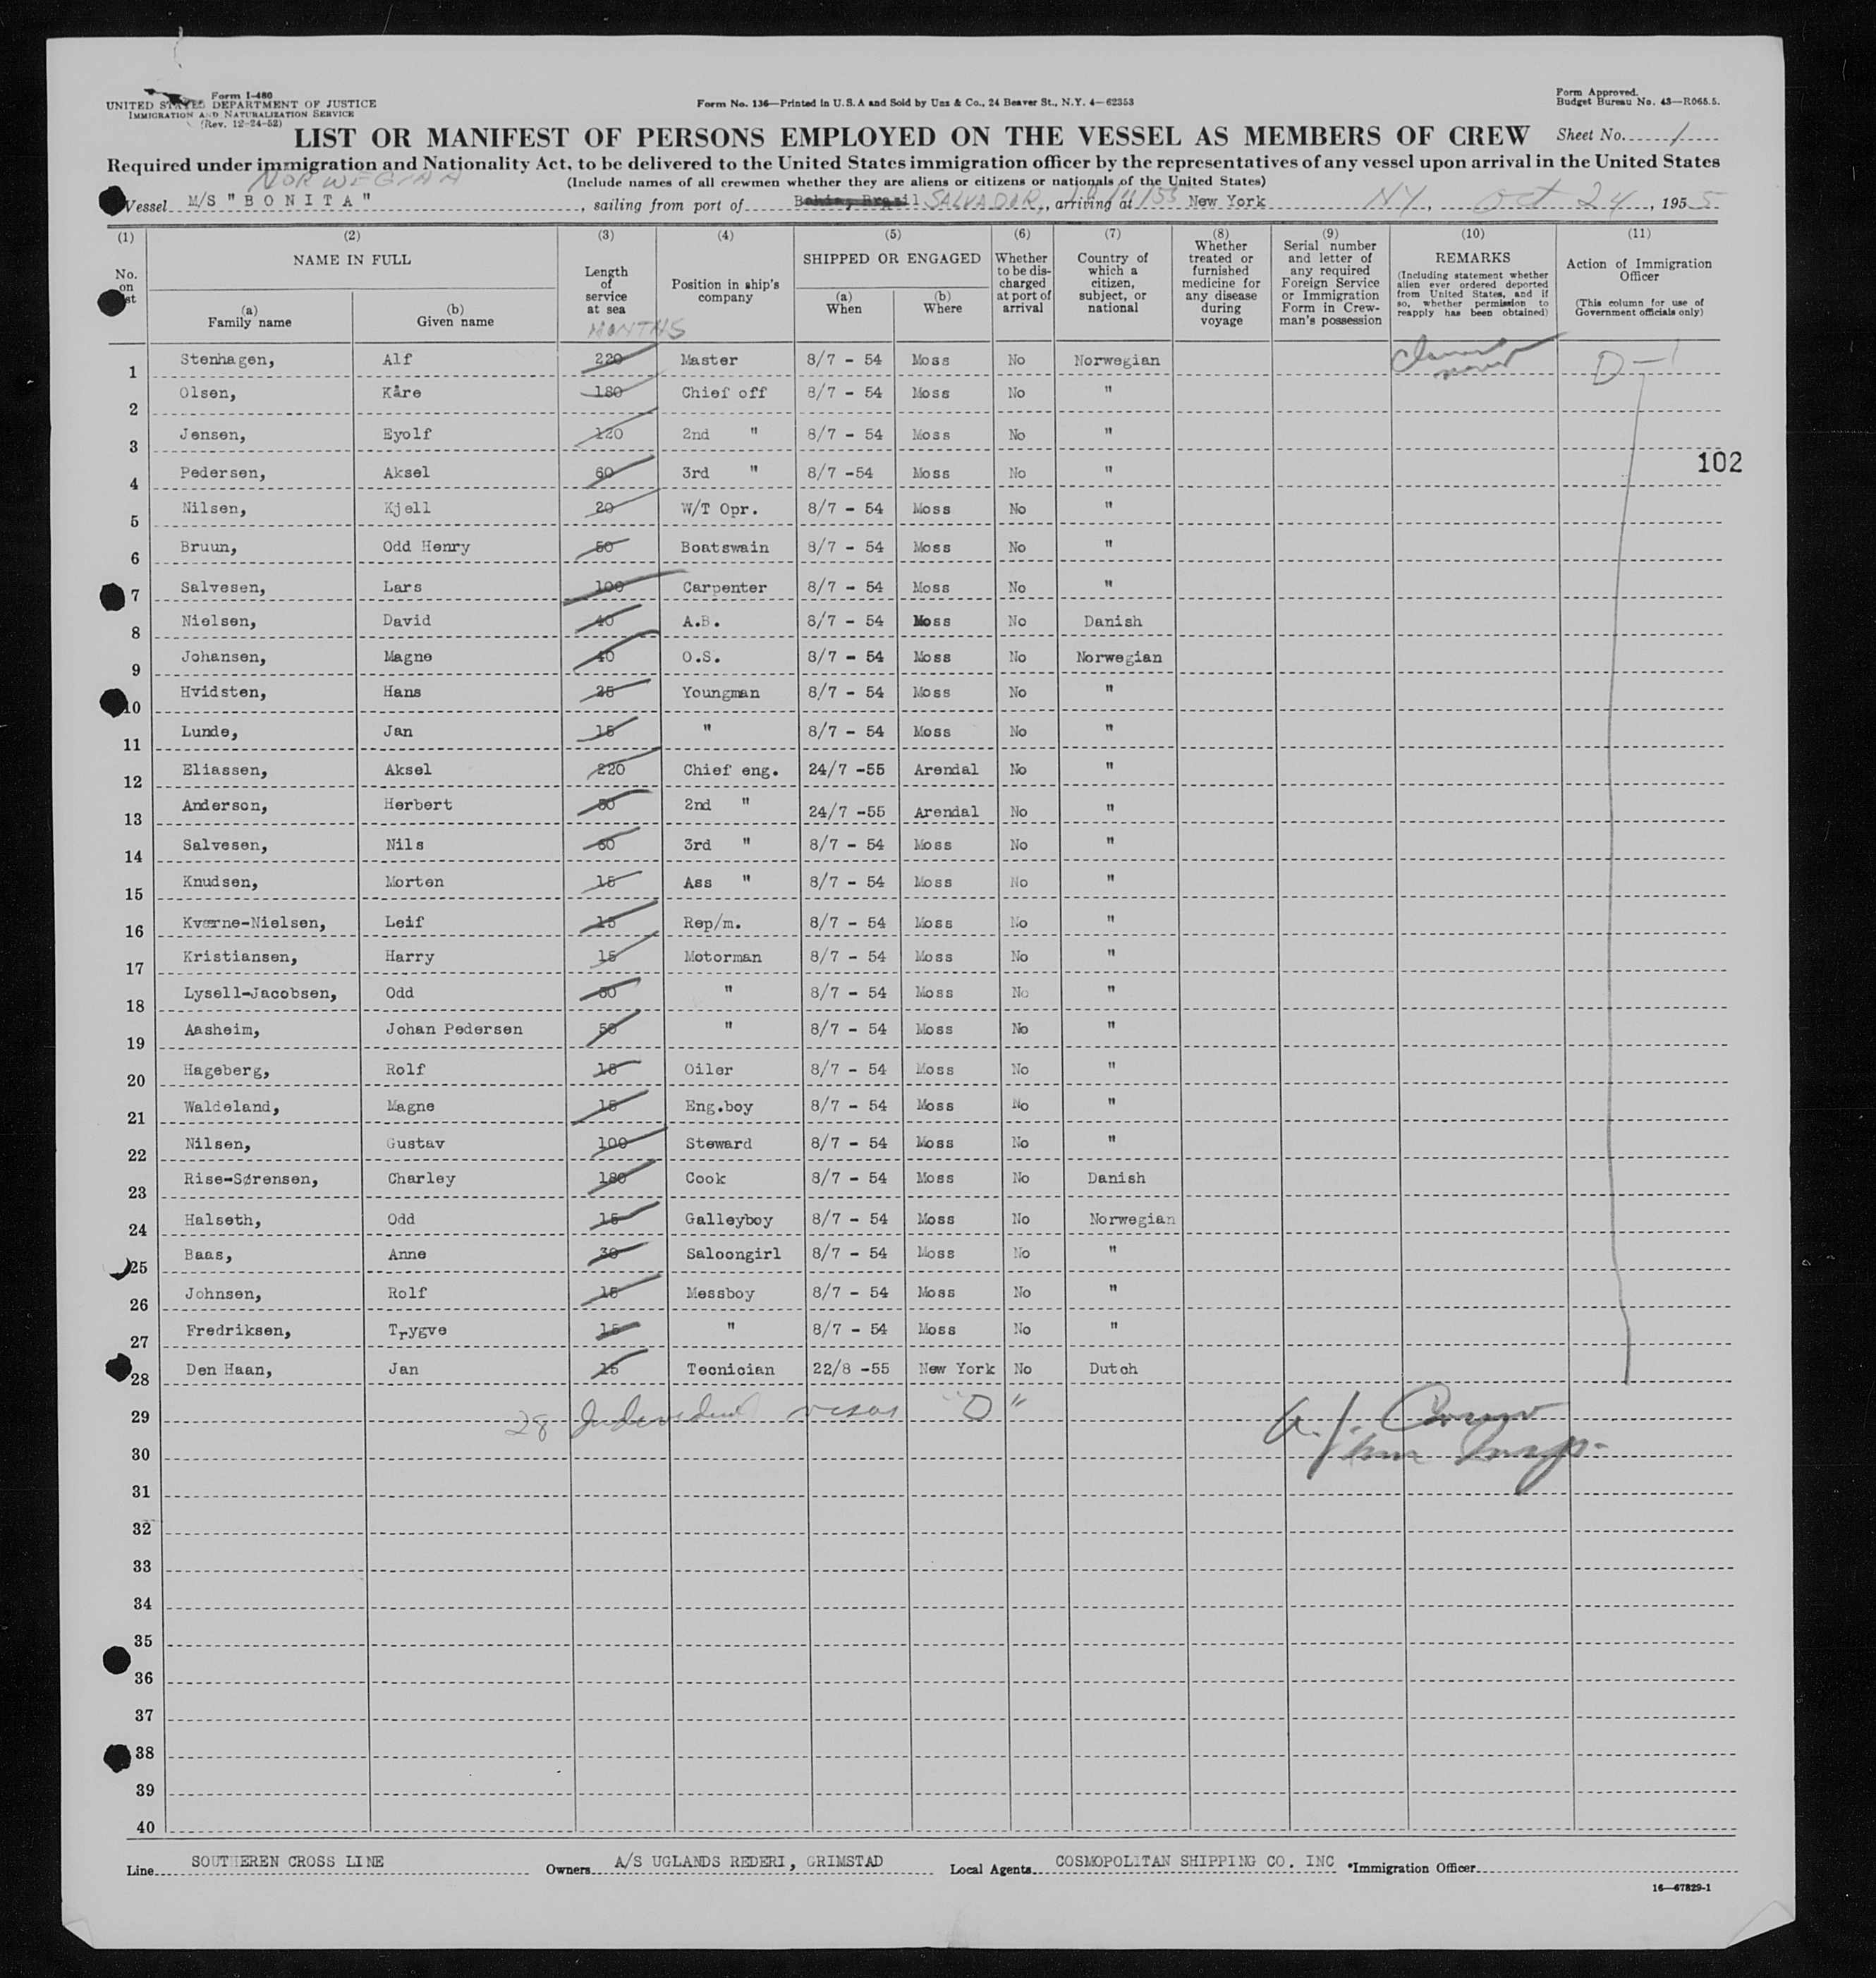 Form I-480
UNITED STATES DEPARTMENT OF JUSTICE
IMMIGRATION AND NATURALIZATION SERVICE
(Rev. 12-24-52)
Form No. 136—Printed in U.S.A and Sold by Unz & Co., 24 Beaver St., N.Y. 4—62353
Form Approved.
Budget Bureau No. 43—R065.5.
LIST OR MANIFEST OF PERSONS EMPLOYED ON THE VESSEL AS MEMBERS OF CREW
Sheet No. 1
Required under immigration and Nationality Act, to be delivered to the United States immigration officer by the representatives of any vessel upon arrival in the United States
NORWEGIAN
(Include names of all crewmen whether they are aliens or citizens or nationals of the United States)
Vessel M/S "BONITA", sailing from port of Bahia, Brazil SALVADOR, arriving at New York NY, Oct 24, 1955
(1) (2) (3) (4) (5) (6) (7) (8) (9) (10) (11)
No. on list
NAME IN FULL
(a) Family name
(b) Given name
Length of service at sea
MONTHS
Position in ship's company
SHIPPED OR ENGAGED
(a) When
(b) Where
Whether to be discharged at port of arrival
Country of which a citizen, subject, or national
Whether treated or furnished medicine for any disease during voyage
Serial number and letter of any required Foreign Service or Immigration Form in Crewman's possession
REMARKS
(Including statement whether alien ever ordered deported from United States, and if so, whether permission to reapply has been obtained)
Action of Immigration Officer
(This column for use of Government officials only)
1 Stenhagen, Alf 220 Master 8/7 - 54 Moss No Norwegian D-1
2 Olsen, Kåre 180 Chief off 8/7 - 54 Moss No "
3 Jensen, Eyolf 120 2nd " 8/7 - 54 Moss No "
102
4 Pedersen, Aksel 60 3rd " 8/7 -54 Moss No "
5 Nilsen, Kjell 20 W/T Opr. 8/7 - 54 Moss No "
6 Bruun, Odd Henry 50 Boatswain 8/7 - 54 Moss No "
7 Salvesen, Lars 100 Carpenter 8/7 - 54 Moss No "
8 Nielsen, David 40 A.B. 8/7 - 54 Moss No Danish
9 Johansen, Magne 40 O.S. 8/7 - 54 Moss No Norwegian
10 Hvidsten, Hans 25 Youngman 8/7 - 54 Moss No "
11 Lunde, Jan 15 " 8/7 - 54 Moss No "
12 Eliassen, Aksel 220 Chief eng. 24/7 -55 Arendal No "
13 Anderson, Herbert 80 2nd " 24/7 -55 Arendal No "
14 Salvesen, Nils 60 3rd " 8/7 - 54 Moss No "
15 Knudsen, Morten 15 Ass " 8/7 - 54 Moss No "
16 Kværne-Nielsen, Leif 15 Rep/m. 8/7 - 54 Moss No "
17 Kristiansen, Harry 15 Motorman 8/7 - 54 Moss No "
18 Lysell-Jacobsen, Odd 30 " 8/7 - 54 Moss No "
19 Aasheim, Johan Pedersen 50 " 8/7 - 54 Moss No "
20 Hageberg, Rolf 15 Oiler 8/7 - 54 Moss No "
21 Waldeland, Magne 15 Eng.boy 8/7 - 54 Moss No "
22 Nilsen, Gustav 100 Steward 8/7 - 54 Moss No "
23 Rise-Sørensen, Charley 180 Cook 8/7 - 54 Moss No Danish
24 Halseth, Odd 15 Galleyboy 8/7 - 54 Moss No Norwegian
25 Baas, Anne 30 Saloongirl 8/7 - 54 Moss No "
26 Johnsen, Rolf 15 Messboy 8/7 - 54 Moss No "
27 Fredriksen, Trygve 15 " 8/7 - 54 Moss No "
28 Den Haan, Jan 15 Tecnician 22/8 -55 New York No Dutch
29 28 visas "D"
30
31
32
33
34
35
36
37
38
39
40
Line SOUTHEREN CROSS LINE Owners A/S UGLANDS REDERI, GRIMSTAD Local Agents COSMOPOLITAN SHIPPING CO. INC *Immigration Officer
16—67829-1